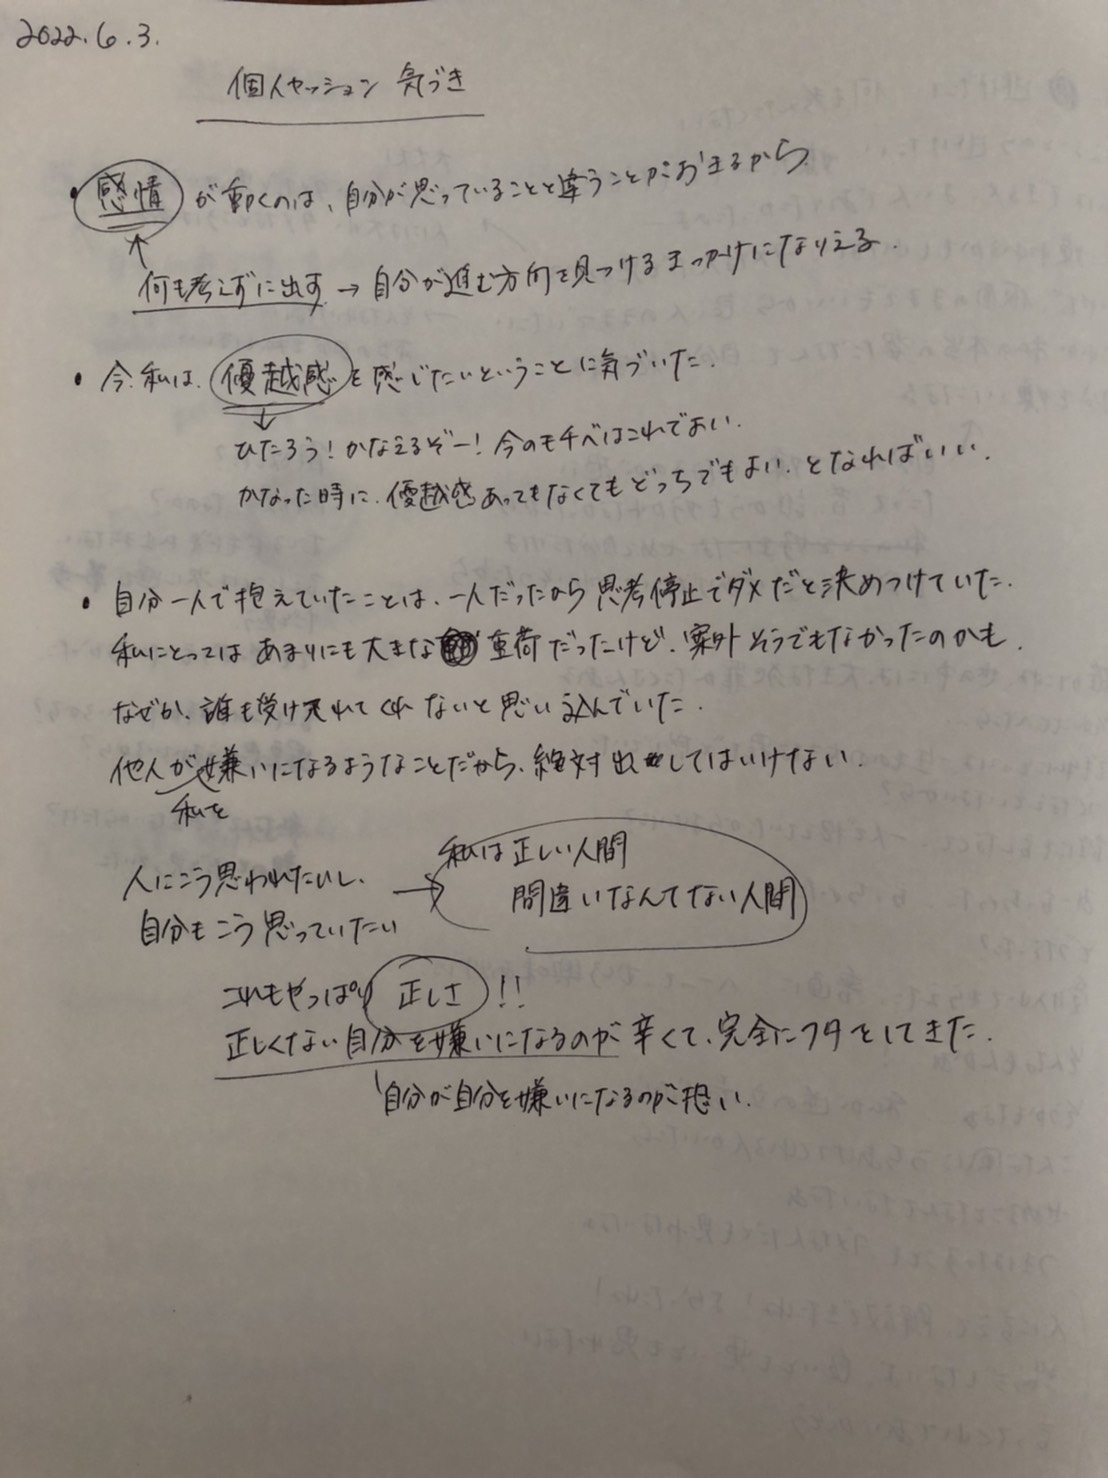 2022.6.3.
個人セッション 気づき
・感情が動くのは、自分が思っていることと違うことがおきるから
↑
何も考えずに出す → 自分が進む方向を見つけるきっかけになりえる.
・今、私は、優越感を感じたいということに気づいた.
↓
ひたろう！かなえるぞー！今のモチベはこれでよい.
かなった時に、優越感あってもなくてもどっちでもよい、となればいい.
・自分一人で抱えていたことは、一人だったから思考停止でダメだと決めつけていた.
私にとってはあまりにも大きな重荷だったけど、案外そうでもなかったのかも.
なぜか、誰も受け入れてくれないと思い込んでいた.
他人が嫌いになるようなことだから、絶対出してはいけない.
私を
人にこう思われたいし、
自分もこう思っていたい
→ 私は正しい人間
間違いなんてない人間
これもやっぱり正しさ!!
正しくない自分を嫌いになるのが辛くて、完全にフタをしてきた.
自分が自分を嫌いになるのが怖い.